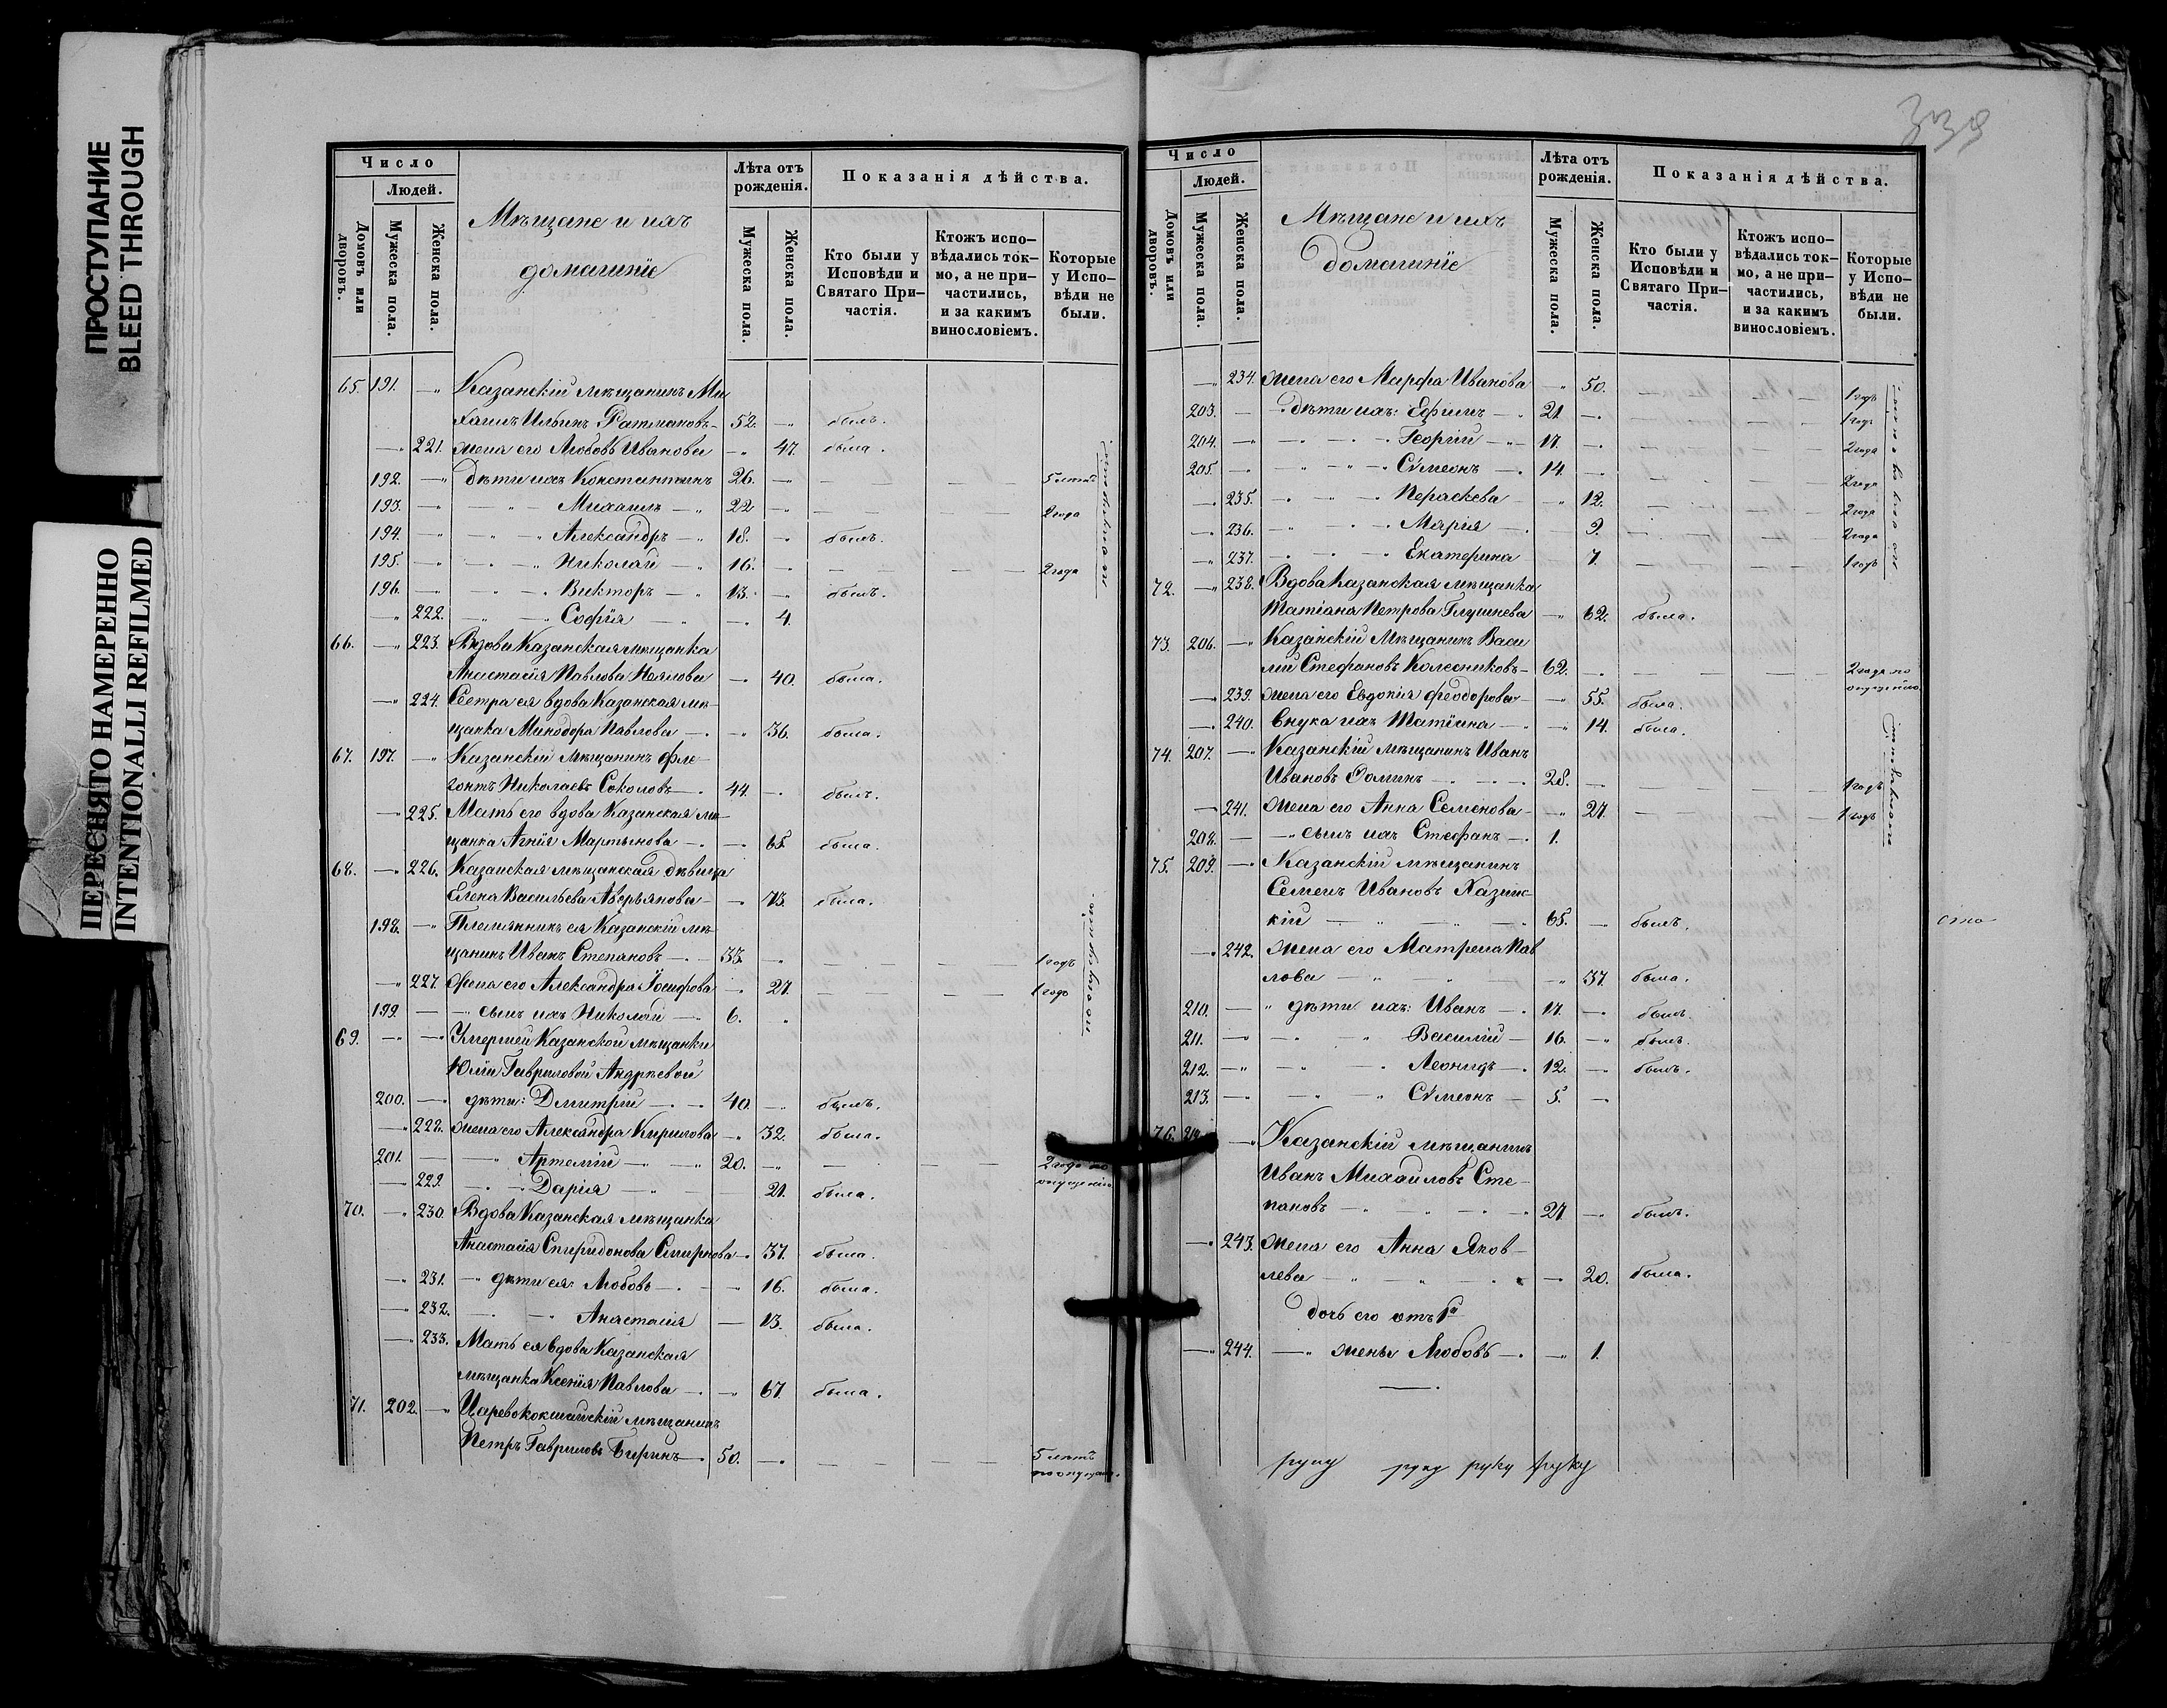 ПРОСТУПАНИЕ
BLEED THROUGH
ПЕРЕСНЯТО НАМЕРЕННО
INTENTIONALLI REFILMED
Число
Людей.
Домовъ или дворовъ.
Мужеска пола.
Женска пола.
Мѣщане и ихъ
домашніе
Лѣта отъ рожденія.
Мужеска пола.
Женска пола.
Показанія дѣйства.
Кто были у Исповѣди и Святаго При-частія.
Ктожъ испо-вѣдались ток-мо, а не при-частились, и за какимъ винословіемъ.
Которые у Испо-вѣди не были.
65. 191. — Казанскій мѣщанинъ Ми
хаилъ Ильинъ Ратмановъ - 52. — былъ.
— 221. жена его Любовь Иванова — 47. была.
192. — дѣти ихъ Константинъ 26. — — — 5 лѣтъ
193. — — Михаилъ — 22 — — — 2 года
194. — — Александръ — 18. — былъ.
195. — — Николай — 16. — — — 2 года
196. — — Викторъ — 13. — былъ.
— 222. — Софія — — 4.
по опущенію
66. — 223. Вдова Казанская мѣщанка
Анастасія Павлова — 40. была.
— 224. Сестра ея вдова Казанская мѣ-
щанка Минодора Павлова — — 36. была.
67. 197. — Казанскій мѣщанинъ Фле-
гонтъ Николаевъ Соколовъ — 44. — былъ.
— 225. Мать его вдова Казанская мѣ-
щанка Агнія Мартынова — — 65. была.
68. — 226. Казанская мѣщанская дѣвица
Елена Васильева Аверьянова — — 73. была.
198. — Племянникъ ея Казанскій мѣ-
щанинъ Иванъ Степановъ — 33. — — — 1 годъ
— 227. Жена его Александра Іосифова — 27. — — 1 годъ
199. — — сынъ ихъ Николай — 6.
по опущенію
69. — — Умершей Казанской мѣщанки
Юліи Гавриловой Андреевой
200. — дѣти: Димитрій — 40. — былъ.
— 228. жена его Александра Кирилова — 32. была.
201. — — Артемій — 20. — — — 2 года по опущенію
— 229. — Дарія — 21. была.
70. — 230. Вдова Казанская мѣщанка
Анастасія Спиридонова Смирнова — 37. была.
— 231. — дѣти ея: Любовь — — 16. была.
— 232. — — Анастасія — 13. была.
— 233. Мать ея вдова Казанская
мѣщанка Ксенія Павлова — — 67. была.
71. 202. — Царевококшайскій мѣщанинъ
Петръ Гавриловъ Биринъ — 50. — — — 5 лѣтъ по опущен.
339
Число
Людей.
Домовъ или дворовъ.
Мужеска пола.
Женска пола.
Мѣщане и ихъ
домашніе
Лѣта отъ рожденія.
Мужеска пола.
Женска пола.
Показанія дѣйства.
Кто были у Исповѣди и Святаго При-частія.
Ктожъ испо-вѣдались ток-мо, а не при-частились, и за какимъ винословіемъ.
Которые у Испо-вѣди не были.
— 234. жена его Марфа Иванова — 50. — — 1 годъ
203. — дѣти ихъ: Ефимъ — 21. — — 1 годъ
204. — — Георгій — 17. — — 2 года
205. — — Сѵмеонъ — 14. — — 2 года
— 235. — — Параскева — 12. — — 2 года
— 236. — — Марія — 9. — — 2 года
— 237. — — Екатерина 7. — — 1 годъ
по опущенію
72. — 238. Вдова Казанская мѣщанка
Татіана Петрова Глушнева — 62. была.
73. 206. — Казанскій Мѣщанинъ Васи
лій Стефановъ Колесниковъ — 62. — — — 2 года по опущенію
— 239. жена его Евдокія Феодорова — — 55. была.
— 240. Внука ихъ Татіана — — 14. была.
74. 207. — Казанскій мѣщанинъ Иванъ
Ивановъ Ѳоминъ — 28. — — — 1 годъ
— 241. жена его Анна Семенова — 27. — — 1 годъ
208. — — сынъ ихъ Стефанъ — 1.
по опущенію
75. 209. — Казанскій мѣщанинъ
Семенъ Ивановъ Казанс-
кій — — 65. — былъ.
— 242. жена его Матрена Пав
лова — — 37. была.
210. — дѣти ихъ: Иванъ — 17. — былъ.
211. — — Василій — 16. — былъ.
212. — — Леонидъ — 12. — былъ.
213. — — Сѵмеонъ — 5. —
76. — Казанскій мѣщанинъ
Иванъ Михайловъ Сте-
пановъ — — 27. — былъ.
— 243. жена его Анна Яков-
лева — — 20. была.
дочь его отъ 1й
— 244. — жены Любовь — — 1.
руку руку руку руку